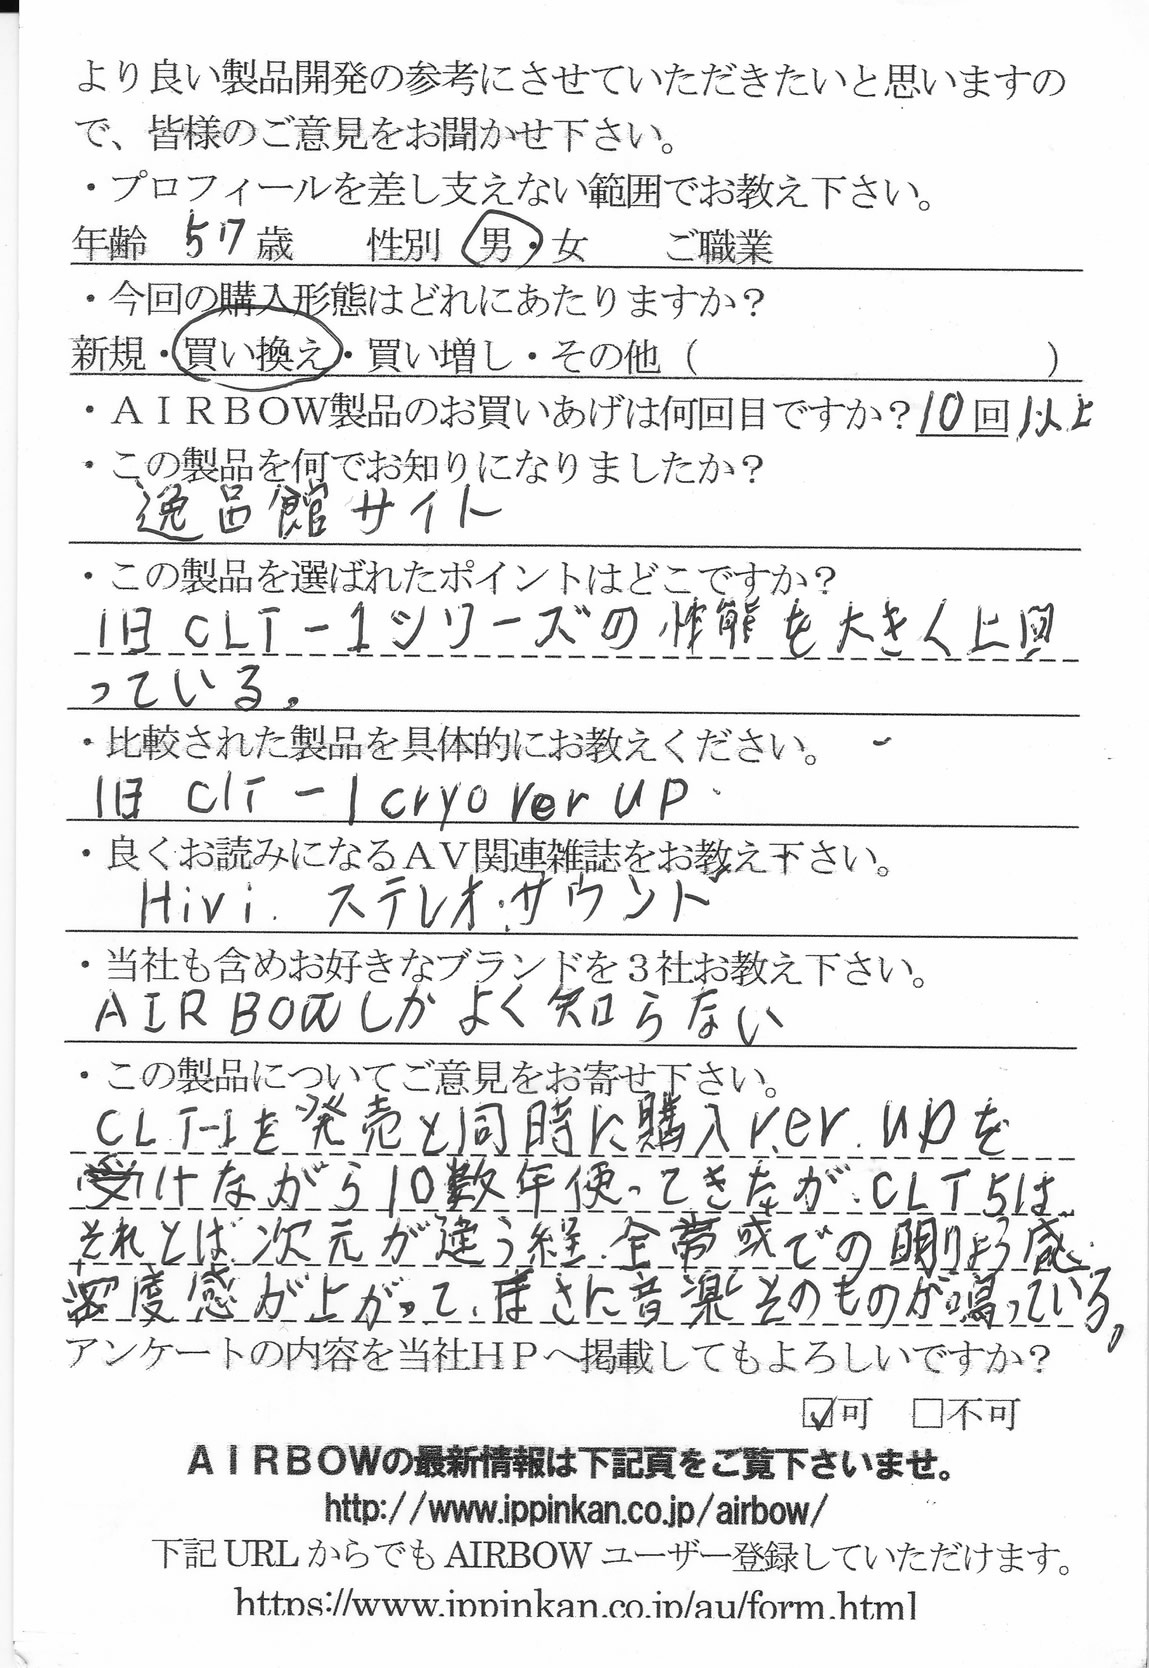 より良い製品開発の参考にさせていただきたいと思いますの
で、皆様のご意見をお聞かせ下さい。
・プロフィールを差し支えない範囲でお教え下さい。
年齢 57歳 性別 男・女 ご職業
・今回の購入形態はどれにあたりますか？
新規・買い換え・買い増し・その他（ ）
・ＡＩＲＢＯＷ製品のお買いあげは何回目ですか？10回以上
・この製品を何でお知りになりましたか？
逸品館サイト
・この製品を選ばれたポイントはどこですか？
旧CLT-1シリーズの性能を大きく上回
っている。
・比較された製品を具体的にお教えください。
旧 CLT-1 cryo ver up
・良くお読みになるＡＶ関連雑誌をお教え下さい。
Hivi. ステレオ・サウンド
・当社も含めお好きなブランドを３社お教え下さい。
AIRBOWしかよく知らない
・この製品についてご意見をお寄せ下さい。
CLT-1を発売と同時に購入ver.upを
受けながら10数年使ってきたが、CLT5は
それとは次元が違う程、全帯域での明りょう感
密度感が上がって、まさに音楽そのものが鳴っている。
アンケートの内容を当社ＨＰへ掲載してもよろしいですか？
☑可 □不可
ＡＩＲＢＯＷの最新情報は下記頁をご覧下さいませ。
http://www.ippinkan.co.jp/airbow/
下記 URL からでも AIRBOW ユーザー登録していただけます。
https://www.ippinkan.co.jp/au/form.html